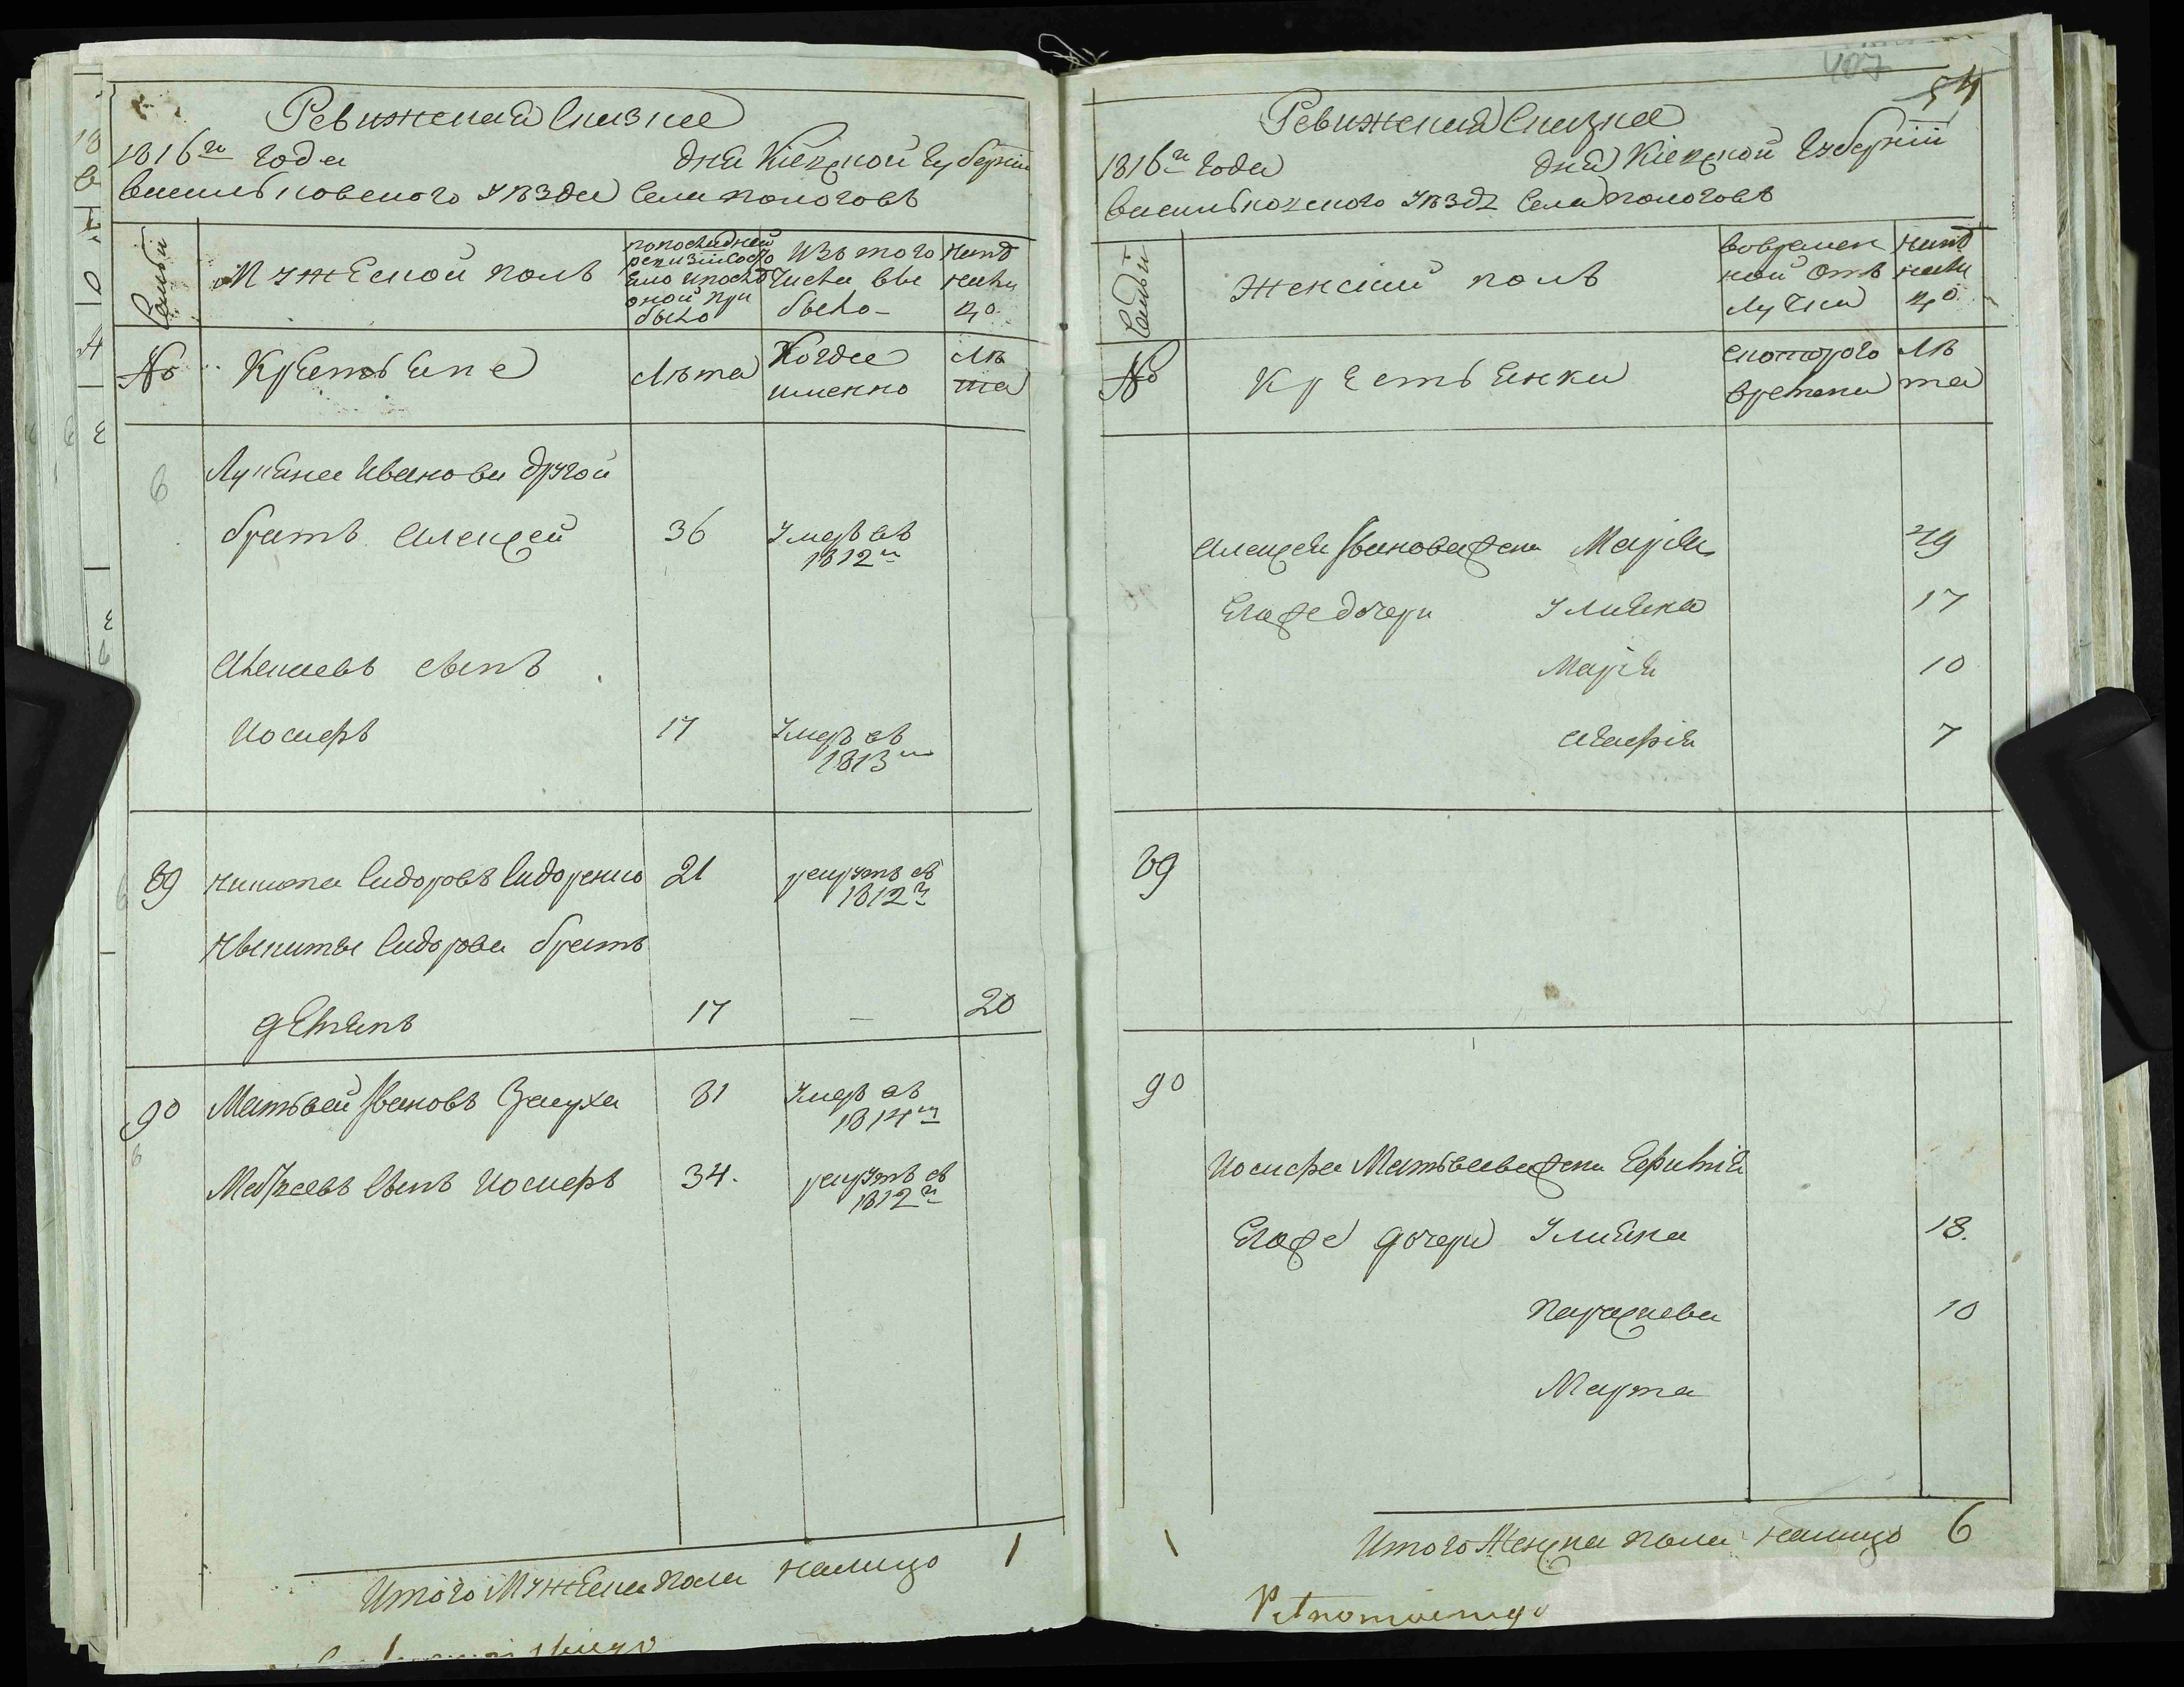 Ревижская Сказка
1816го года дня Кіевской Губерніи
васильковского Уѣзда Села пологовъ
Семьи
Мужеской полъ
попоследней ревизіи состояло ипослѣ оной прибыло
Изъ того Числа выбыло
Нынѣ налицо
№
Крестьяне
Лѣта
Когда именно
Лѣта
6
Лукьяна Иванова другой
братъ Алексей 36 Умеръ въ 1812м
Алексеевъ сынъ
Иосифъ 17 Умеръ въ 1813м
89 Никита Сидоровъ Сидоренко 21 рекрутъ въ 1812м
Никиты Сидорова братъ
Демянъ 17 — 20
90 Матвей Ивановъ 81 Умеръ въ 1814м
6
Матвеевъ Сынъ Иосифъ 34. рекрутъ въ 1812м
Итого Мужеска пола налицо 1
407
54
Ревижская Сказка
1816го года дня Кіевской Губерніи
васильковского Уѣзда Села пологовъ
Семьи
Женский полъ
вовременной отлучки
Нынѣ налицо
№
Крестьянки
скоторого времени
Лѣта
Алексея Иванова жена Марія 49
Егоже дочери Ульяна 17
Марія 10
Агафія 7
89
90
Иосифа Матвеева жена Ефимія
Егоже дочери Ульяна 18.
Параскева 10
Марта
Итого Женска пола налицо 6